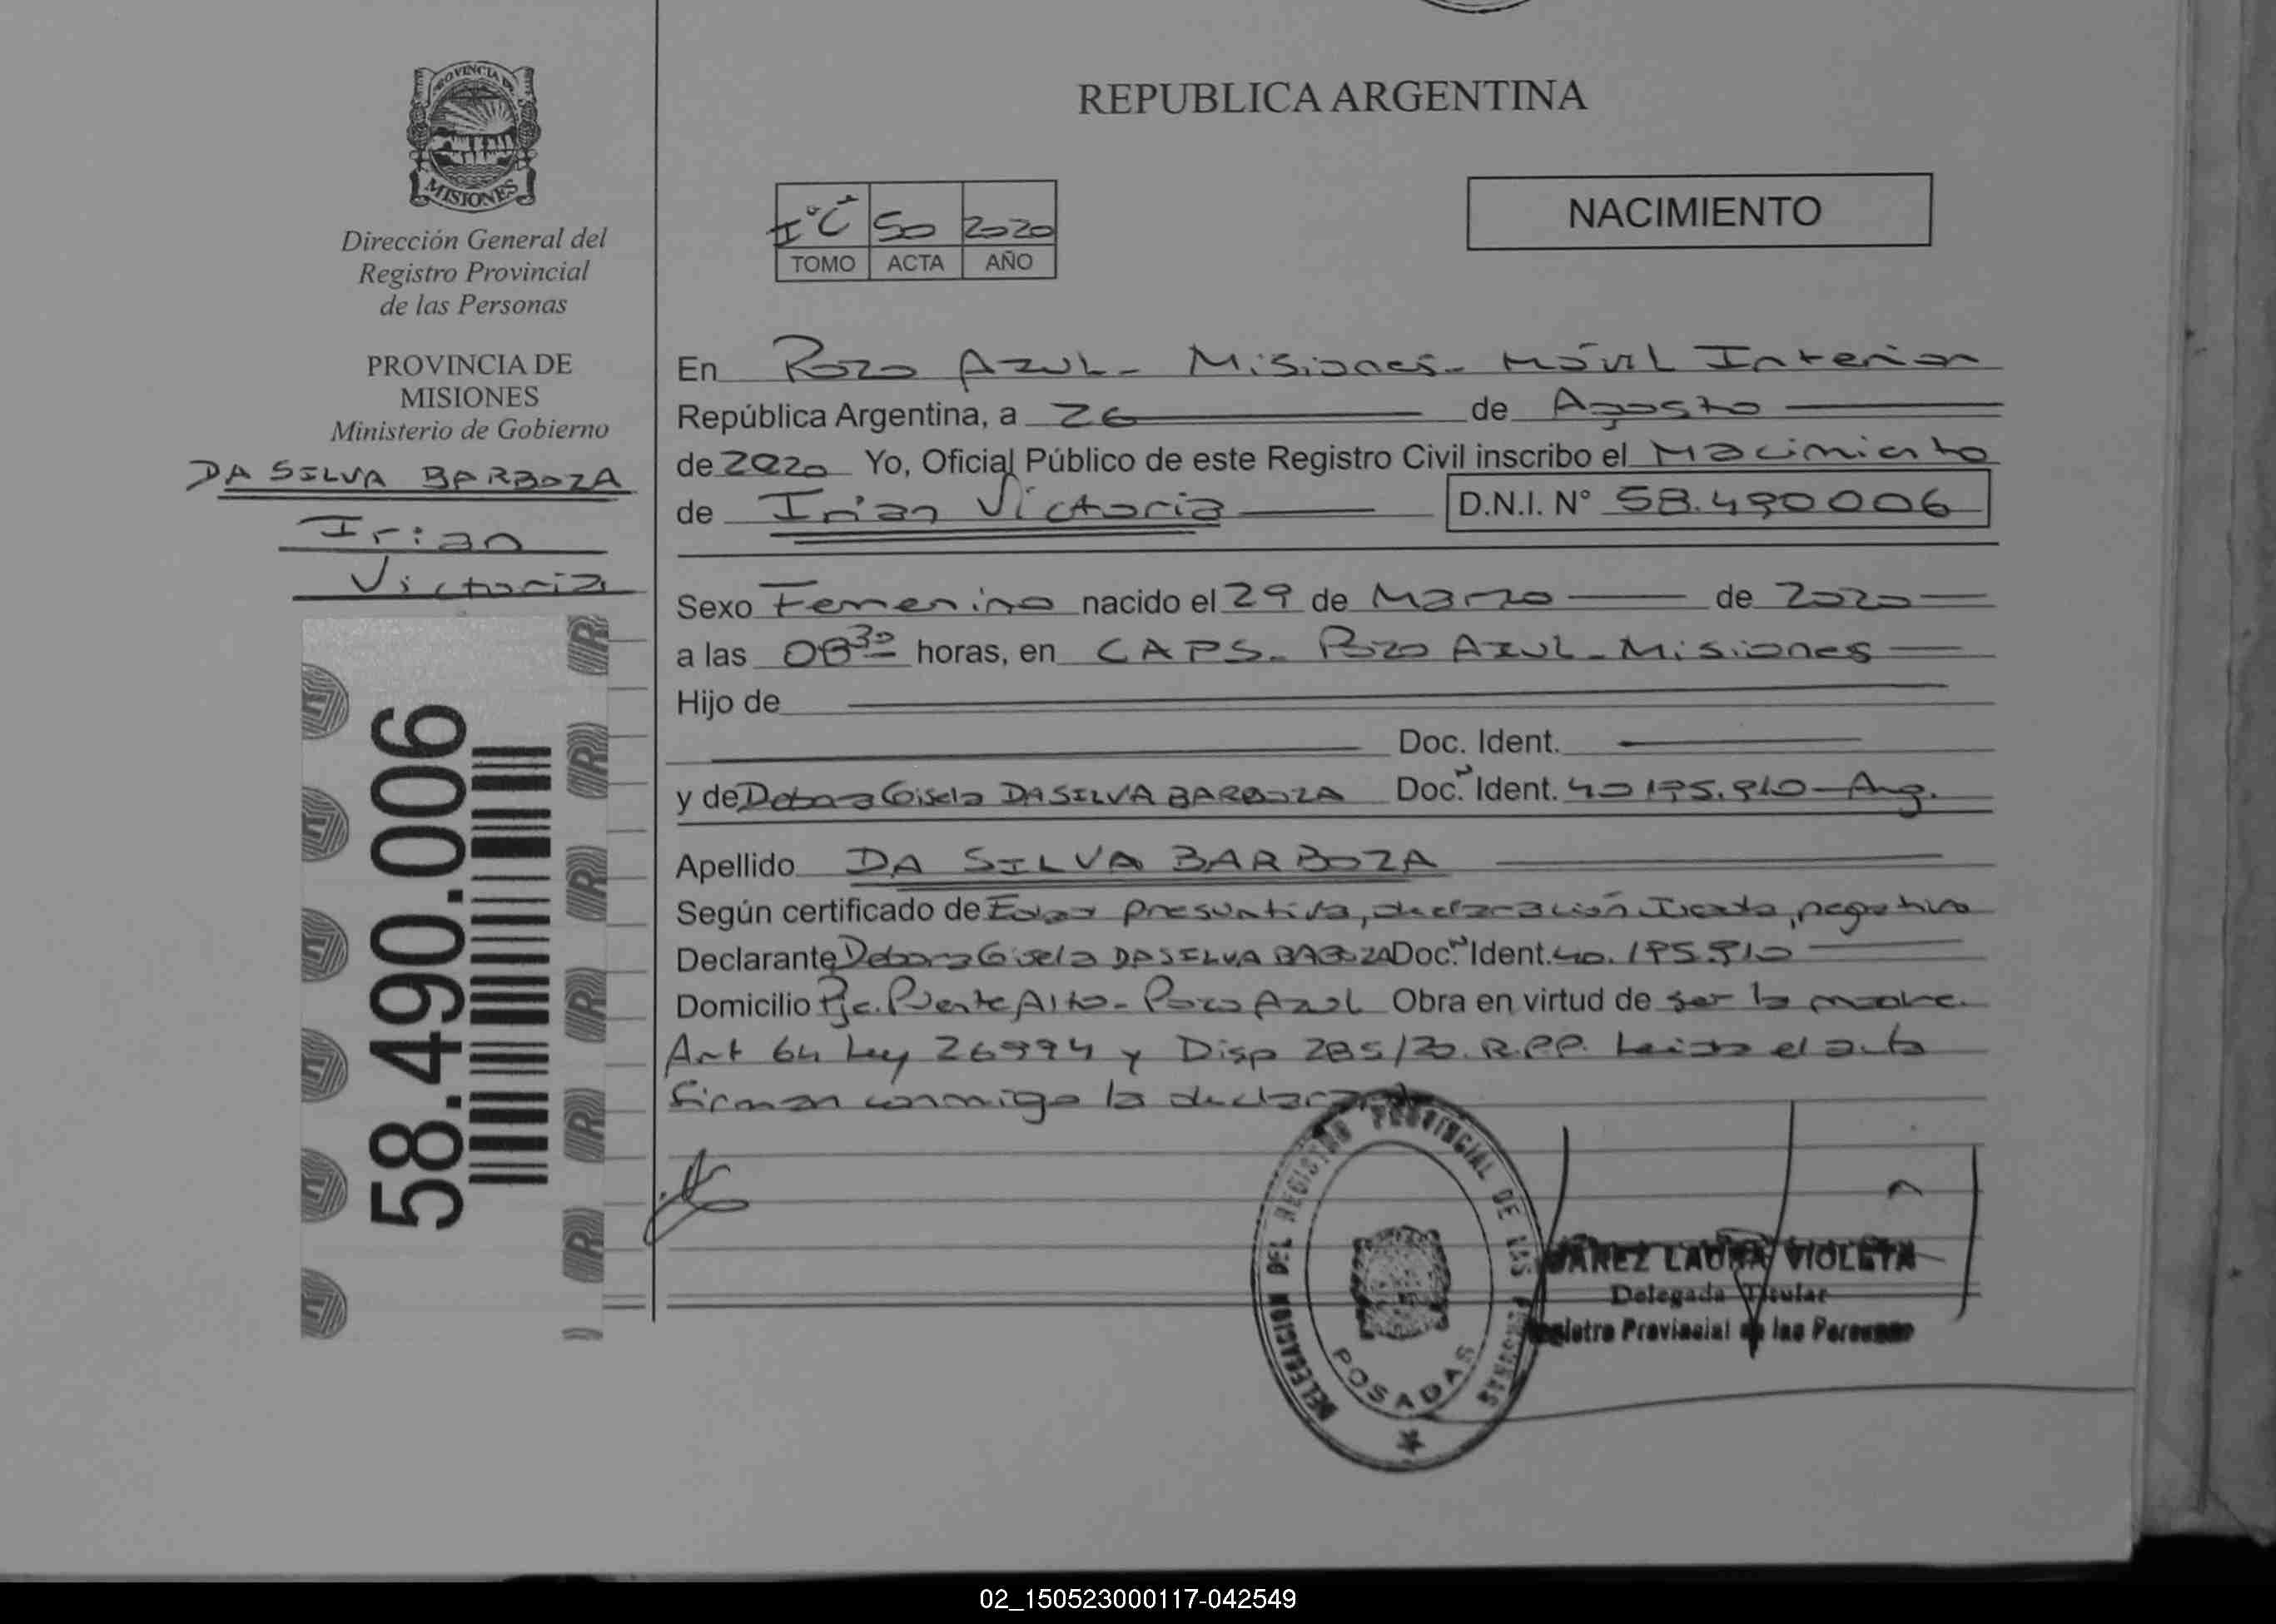 PROVINCIA DE
MISIONES
Dirección General del
Registro Provincial
de las Personas
PROVINCIA DE
MISIONES
Ministerio de Gobierno
DA SILVA BARBOZA
Irian
Victoria
58.490.006
REPUBLICA ARGENTINA
I°C 50 2020
TOMO ACTA AÑO
NACIMIENTO
En Pozo Azul - Misiones - Móvil Interior
República Argentina, a 26 de Agosto
de 2020 Yo, Oficial Público de este Registro Civil inscribo el Nacimiento
de Irian Victoria D.N.I. N° 58.490006
Sexo Femenino nacido el 29 de Marzo de 2020
a las 08 30 horas, en CAPS - Pozo Azul - Misiones
Hijo de
Doc. Ident.
y de Debora Gisela DA SILVA BARBOZA Doc. Ident. Arg.
Apellido DA SILVA BARBOZA
Según certificado de Edad presuntiva, declaración Jurada, negativo
Declarante Debora Gisela DA SILVA BARBOZA Doc. Ident. 40.195.910
Domicilio Pje. Puente Alto - Pozo Azul Obra en virtud de ser la madre.
Art 64 Ley 26994 y Disp 285/20. R.P.P. Leida el acta
firman conmigo la
DELEGACION DEL REGISTRO PROVINCIAL DE LAS PERSONAS
POSADAS
LAURA VIOLETA
Delegada Titular
Registro Provincial de las Personas
02_150523000117-042549